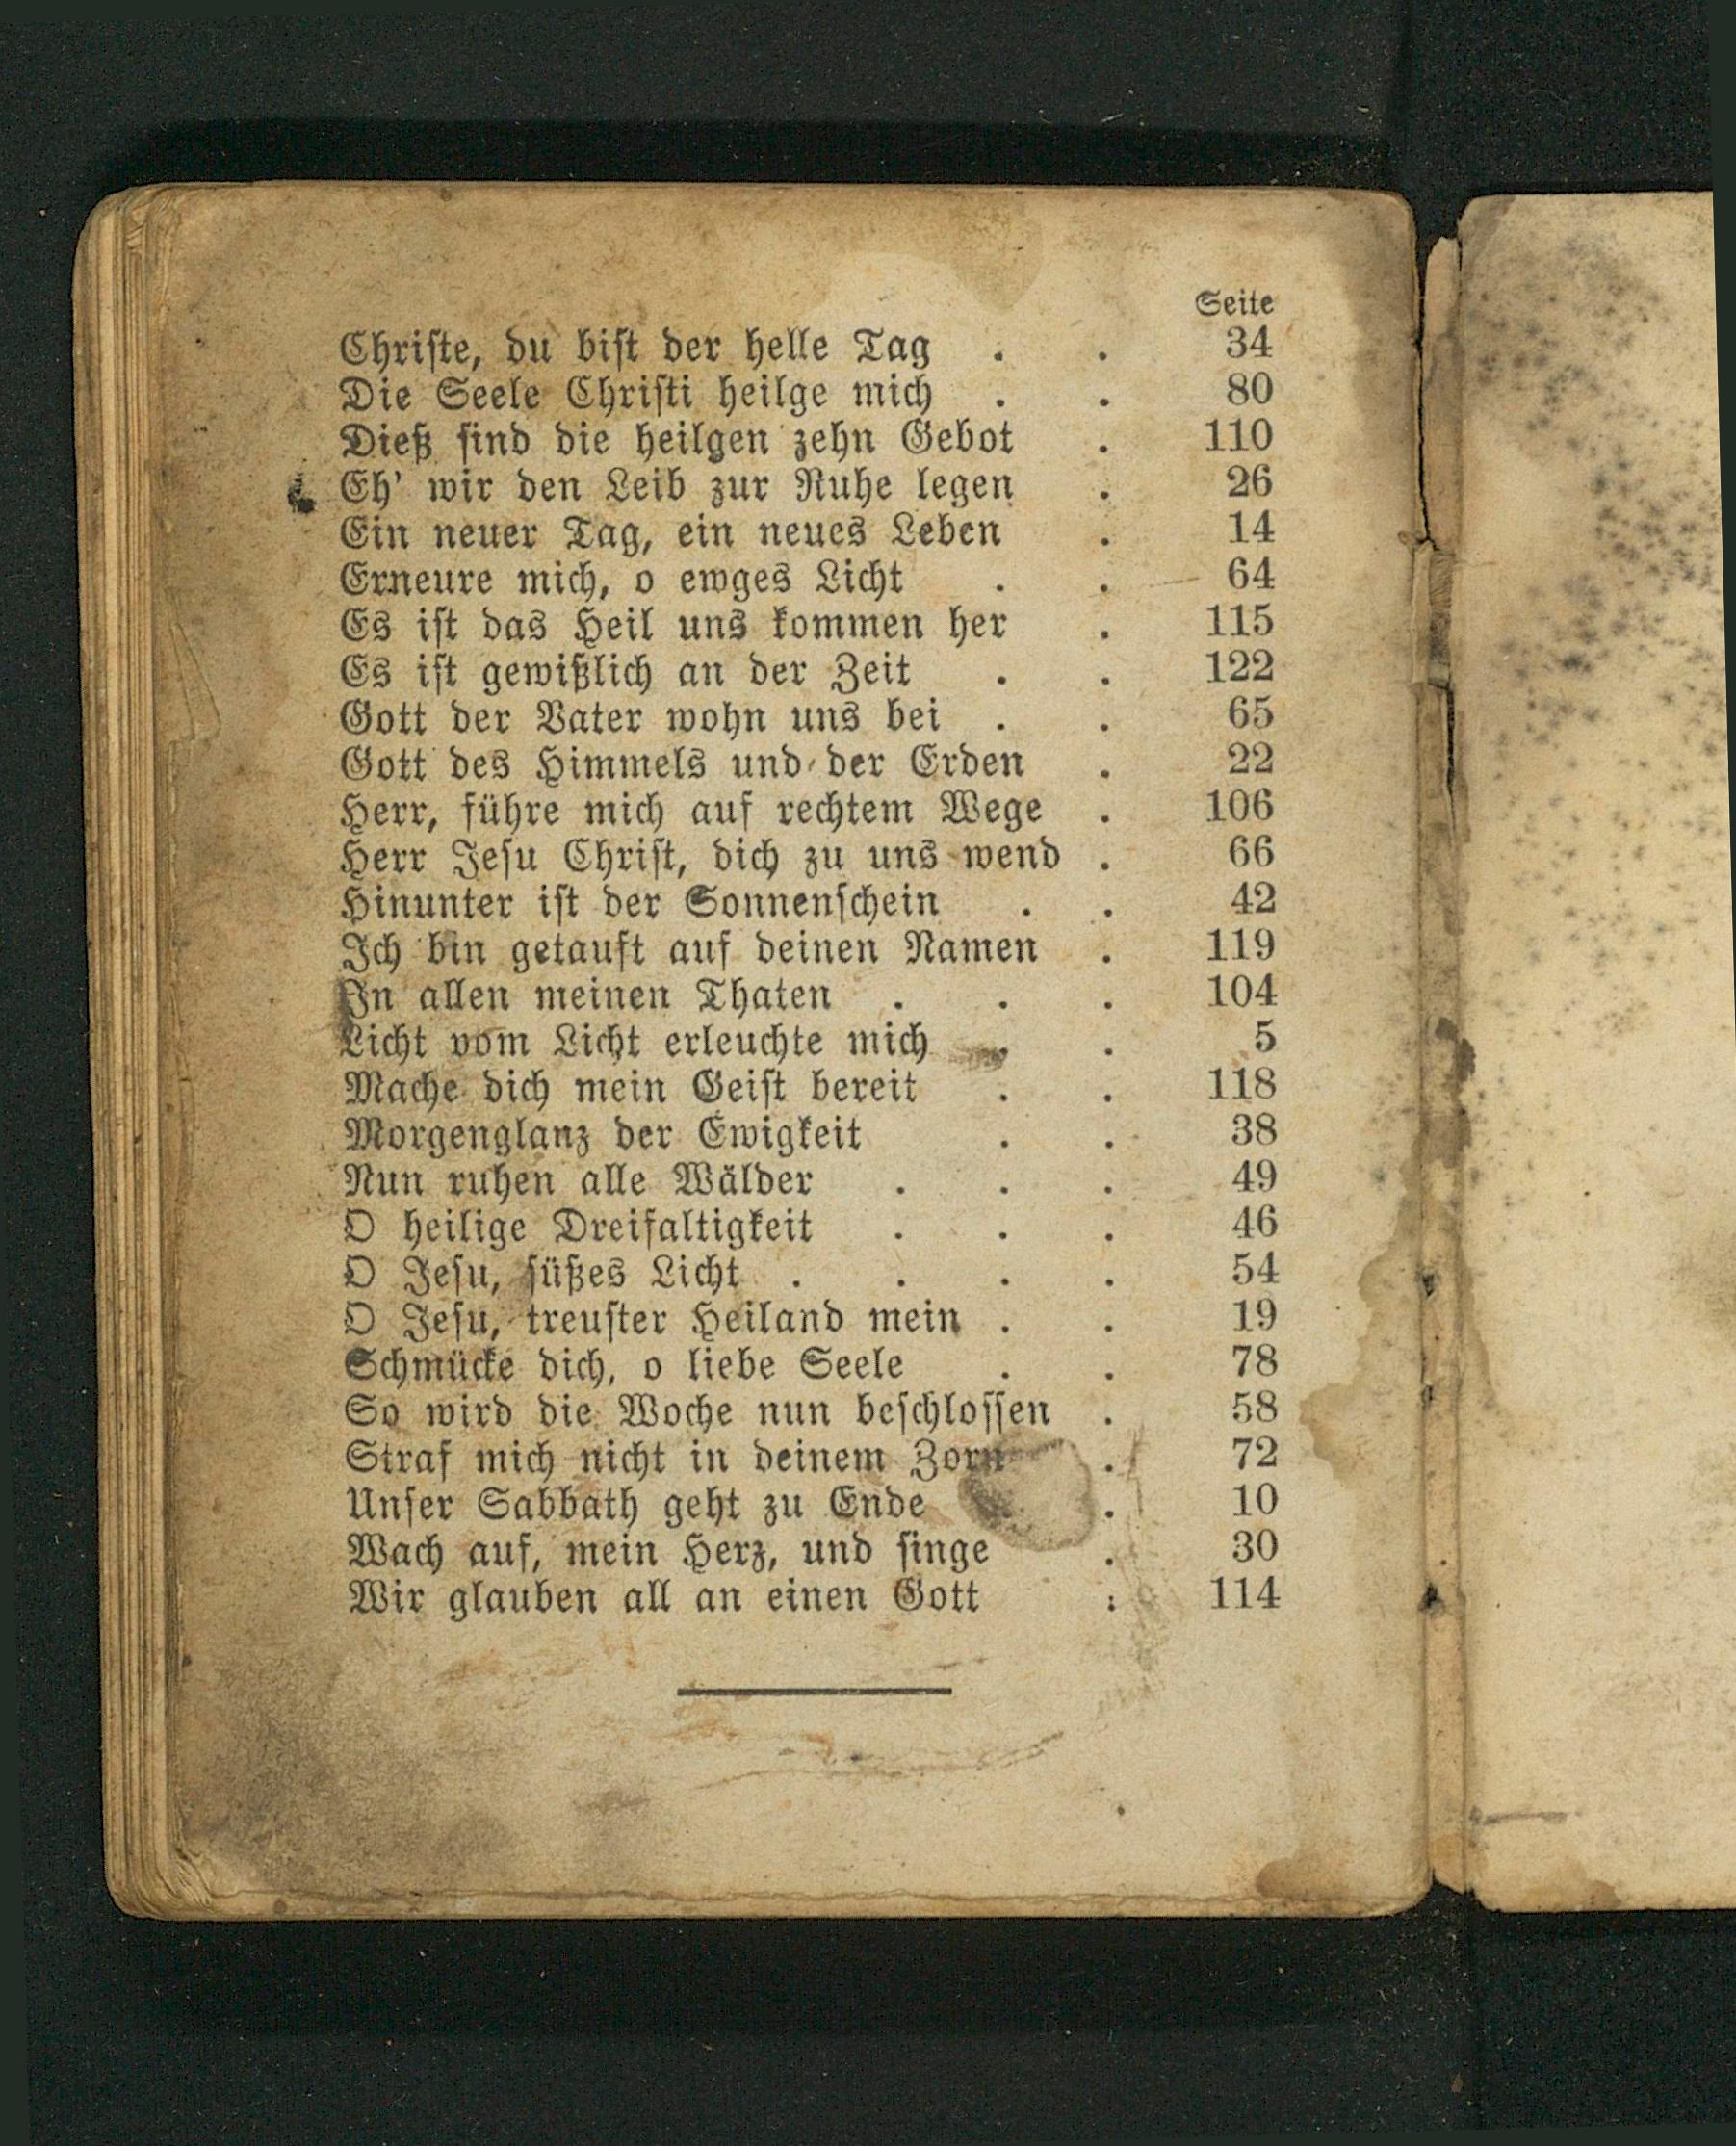 Seite
Christe, du bist der helle Tag . . 34
Die Seele Christi heilge mich . . 80
Dieß sind die heilgen zehn Gebot . 110
Eh' wir den Leib zur Ruhe legen . 26
Ein neuer Tag, ein neues Leben . 14
Erneure mich, o ewges Licht . . 64
Es ist das Heil uns kommen her . 115
Es ist gewißlich an der Zeit . . 122
Gott der Vater wohn uns bei . . 65
Gott des Himmels und der Erden . 22
Herr, führe mich auf rechtem Wege . 106
Herr Jesu Christ, dich zu uns wend . 66
Hinunter ist der Sonnenschein . . 42
Ich bin getauft auf deinen Namen . 119
In allen meinen Thaten . . . 104
Licht vom Licht erleuchte mich . . 5
Mache dich mein Geist bereit . . 118
Morgenglanz der Ewigkeit . . 38
Nun ruhen alle Wälder . . . 49
O heilige Dreifaltigkeit . . . 46
O Jesu, süßes Licht . . . . 54
O Jesu, treuster Heiland mein . . 19
Schmücke dich, o liebe Seele . . 78
So wird die Woche nun beschlossen . 58
Straf mich nicht in deinem Zorn . 72
Unser Sabbath geht zu Ende . 10
Wach auf, mein Herz, und singe . 30
Wir glauben all an einen Gott : 114